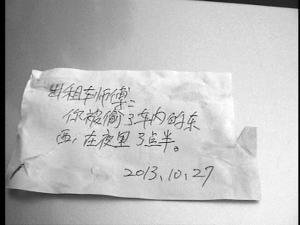 出租车师傅：
你被偷了车内的东
西，在夜里3点半。
2013.10.27